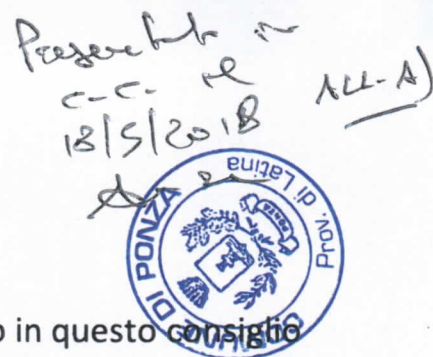 Presentato in
C.C. il
18/5/2018
ALL. A)
COMUNE DI PONZA
Prov. di Latina
o in questo consiglio